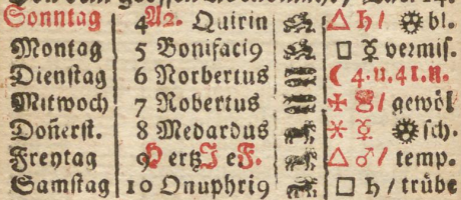 Sonntag 4 A2. Quirin △ ♄ / bl.
Montag 5 Bonifaci9 □ ☿ vermis.
Dienstag 6 Norbertus ☾ 4.u.41.n.
Mitwoch 7 Robertus / gewöl
Don̄erst. 8 Medardus ⚹ ☿ sch.
Freytag 9 HertzJeF. △ ♂ / temp.
Samstag 10 Onuphri9 □ ♄ / trübe